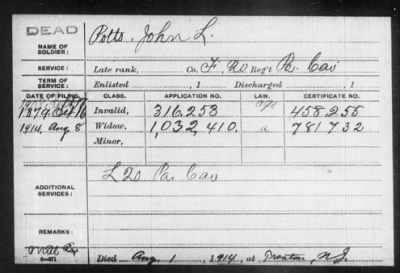 DEAD
NAME OF SOLDIER: Potts, John L.
SERVICE: Late rank, Co. F, 20 Reg't Pa. Cav
TERM OF SERVICE: Enlisted , 1 Discharged , 1
DATE OF FILING. CLASS. APPLICATION NO. LAW. CERTIFICATE NO.
1879, Oct 16 Invalid, 316,253 458255
1914, Aug 8 Widow, 1,032,410. a 781732
Minor,
ADDITIONAL SERVICES: L 20 Pa. Cav
REMARKS:
Died Aug. 1, 1914, at Trenton, N.J.